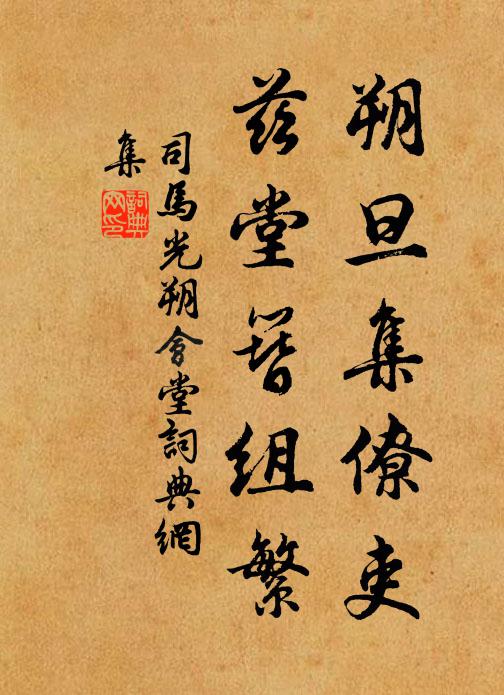 朔旦集僚吏
茲堂簪組繁
司馬光朔會堂詞典網
集
詞典
网印